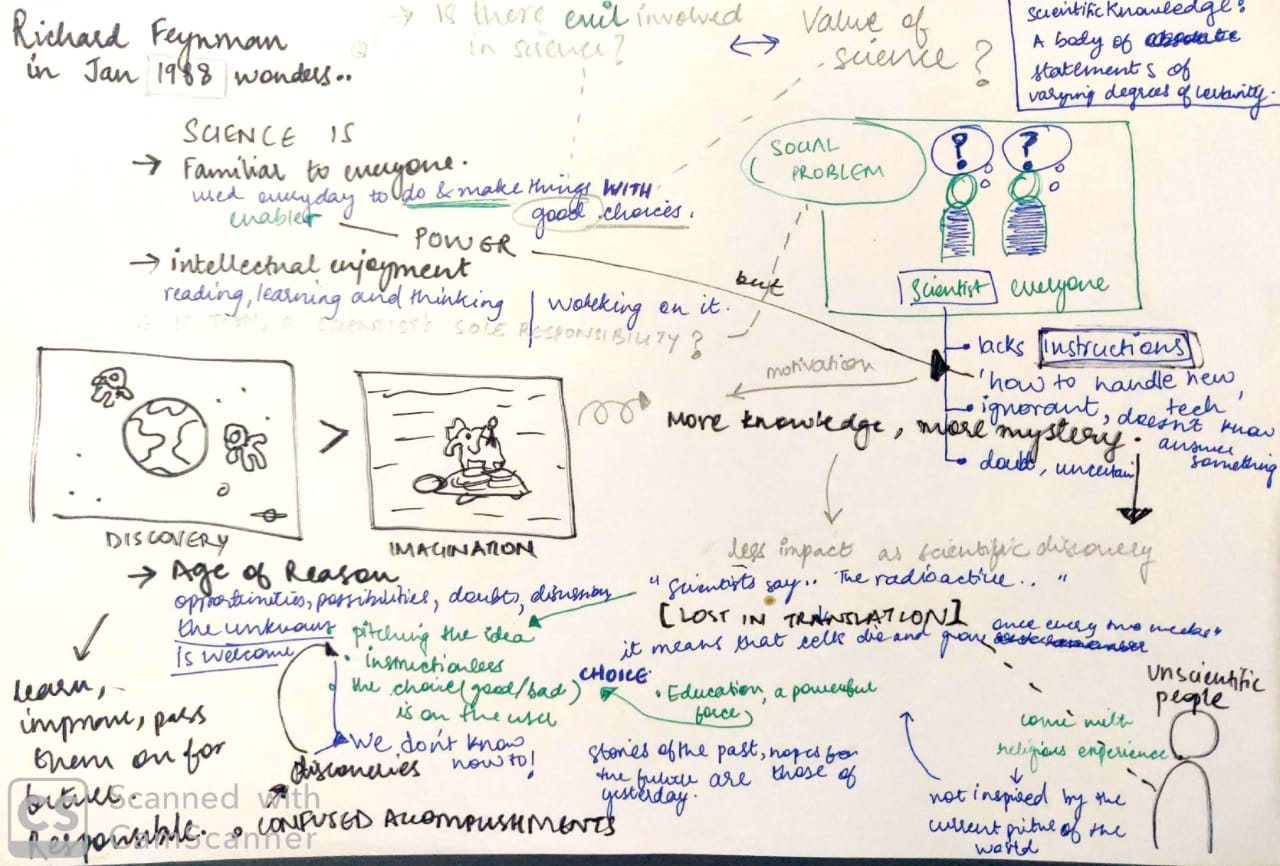 Richard Feynman
in Jan 1988 wonders..
Is there evil involved
in science?
Value of
science?
scientific knowledge:
A body of
statements of
varying degrees of certainity.
SCIENCE IS
→ Familiar to everyone.
used everyday to do & make things WITH
enabler
good choices.
POWER
→ intellectual enjoyment
reading, learning and thinking | working on it.
IS IT THEN, A SCIENTIST'S SOLE RESPONSIBILITY?
but
SOCIAL
PROBLEM
?
?
Scientist
everyone
• lacks instructions
'how to handle new
tech'
• ignorant, doesn't know
answer
something
• doubt, uncertain
motivation
More knowledge, more mystery.
less impact as scientific discovery
>
DISCOVERY
IMAGINATION
→ Age of Reason
opportunities, possibilities, doubts, discussion
the unknown
is welcome
"Scientists say.. The radioactive.. "
[LOST IN TRANSLATION]
once every two weeks"
it means that cells die and grow
pitching the idea
• instructionless
• the choice (good/bad)
is on the user
CHOICE
• Education, a powerful
force
We don't know
how to!
discoveries
• CONFUSED ACCOMPLISHMENTS
stories of the past, hopes for
the future are those of
yesterday.
learn,
improve, pass
them on for
future.
Responsible.
unscientific
people
come with
religious experience
not inspired by the
current picture of the
world
CS
Scanned with
CamScanner